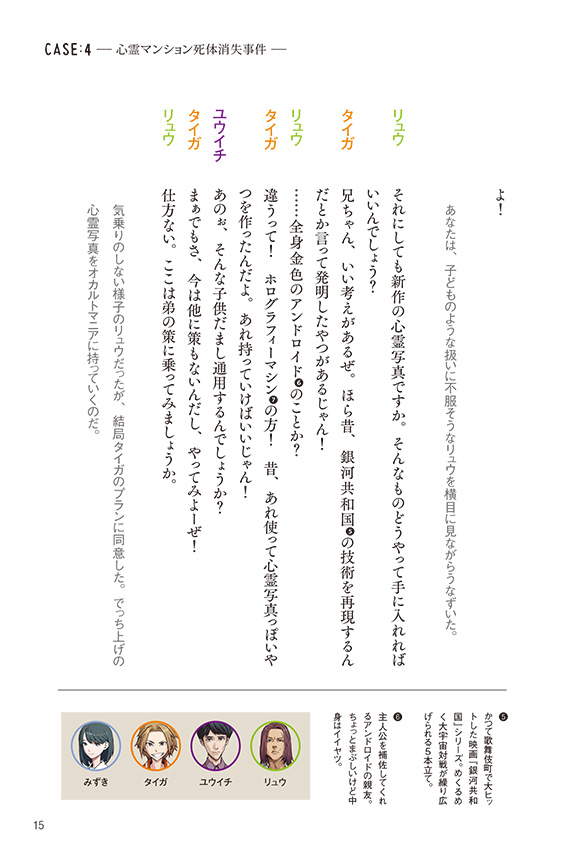 CASE:4 ― 心霊マンション死体消失事件 ―
よ！
あなたは、子どものような扱いに不服そうなリュウを横目に見ながらうなずいた。
リュウ
それにしても新作の心霊写真ですか。そんなものどうやって手に入れれば
いいんでしょう？
タイガ
兄ちゃん、いい考えがあるぜ。ほら昔、銀河共和国❺の技術を再現するん
だとか言って発明したやつがあるじゃん！
リュウ
……全身金色のアンドロイド❻のことか？
タイガ
違うって！　ホログラフィーマシン❼の方！　昔、あれ使って心霊写真っぽいや
つを作ったんだよ。あれ持っていけばいいじゃん！
ユウイチ
あのぉ、そんな子供だまし通用するんでしょうか？
タイガ
まぁでもさ、今は他に策もないんだし、やってみよーぜ！
リュウ
仕方ない。ここは弟の策に乗ってみましょうか。
気乗りのしない様子のリュウだったが、結局タイガのプランに同意した。でっち上げの
心霊写真をオカルトマニアに持っていくのだ。
❺
かつて歌舞伎町で大ヒッ
トした映画『銀河共和
国』シリーズ。めくるめ
く大宇宙対戦が繰り広
げられる5本立て。
❻
主人公を補佐してくれ
るアンドロイドの親友。
ちょっとまぶしいけど中
身はイイヤツ。
みずき
タイガ
ユウイチ
リュウ
15